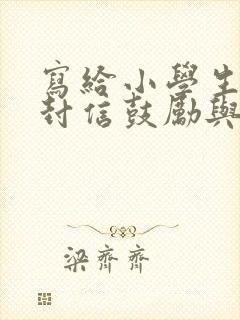 寫給小學生
封信鼓勵與
梁齊齊